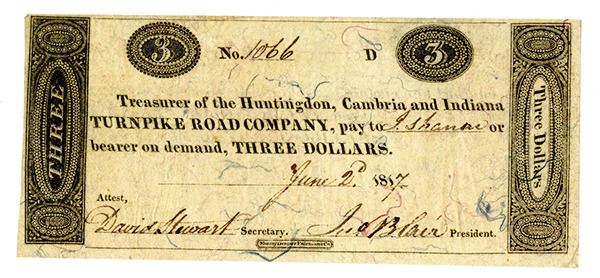 3 No. 1066 D 3
THREE
Three Dollars.
Treasurer of the Huntingdon, Cambria and Indiana
TURNPIKE ROAD COMPANY, pay to or
bearer on demand, THREE DOLLARS.
June 2d. 1817.
Attest,
David Stewart Secretary. Jno Blair President.